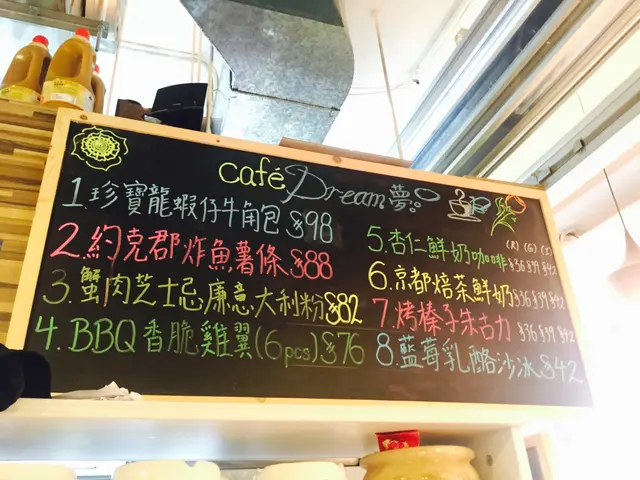 café Dream 夢
1.珍寶龍蝦仔牛角包 $98
2.約克郡炸魚薯條 $88
3.蟹肉芝士忌廉意大利粉 $82
4.BBQ香脆雞翼(6pcs) $76
(R) (G) (I)
5.杏仁鮮奶咖啡 $36 $39 $42
6.京都焙茶鮮奶 $36 $39 $42
7.烤榛子朱古力 $36 $39 $42
8.藍莓乳酪沙冰 $42